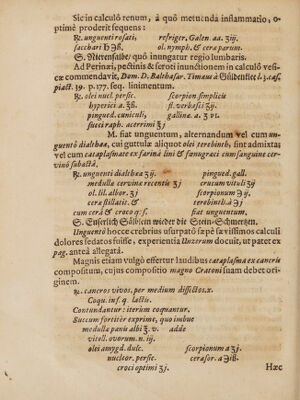 Sic in calculo renum, à quô metuenda inflammatio, o-
ptimè proderit sequens:
℞. unguenti rosati, refriger. Galen. aa ʒij.
sacchari ♄ ℈ß. ol. nymph. & cera parum.
S. Nierensalbe/ quô inungatur regio lumbaris.
Ad Perinæi, pectinis & scroti inunctionem in calculô vesi-
cæ commendavit, Dom. D. Balthasar. Timæus à Güldenklee l. 3. cas.
39. p. 177. seq. linimentum.
℞. olei nucl. persic. scorpion simplicis
hyperici a. ℥ß. fl. verbasci ʒij.
pingued. cuniculi, gallinæ. a. ʒ vi.
succi raph. acerrimi ℥j
M. fiat unguentum, alternandum vel cum un-
guentô dialthææ, cui guttulæ aliquot olei terebinth. sint admixtæ
vel cum cataplasmate ex farina lini & fœnugræci cum sanguine cer-
vinô subactâ.
℞. unguenti dialthææ ℥ij. pingued. gall.
medullæ cervinæ recentis ℥j crucum vituli ℥ij
ol. lil. albor. ℥j scorpionum &
ceræ stillatit. & terebinthi a ʒj
cum cerâ & croco q. s. fiat unguentum.
S. Euserlich Sälblein wieder die Stein-Schmertzen.
Unguentô hocce crebrius usurpatô sæpè sævissimos calculi
dolores sedatos fuisse, experientia Unzerum docuit, ut patet ex
pag. anteà allegatâ.
Magnis etiam vulgò effertur laudibus cataplasma ex cancris
compositum, cujus compositio magno Cratoni suam debet ori-
ginem.
℞. cancros vivos, per medium dissectos. x.
Coqu. in f. q. lactis.
Contundantur: iterùm coquantur.
Succum fortitèr exprime, quo imbue
medullæ panis albi ℥. v. adde
vitell. ovorum. n. iij.
olei amygd. dulc. scorpionum a ʒj
nucleor. persic. cerasor. a ℈iß.
croci optimi ʒj.
Hæc